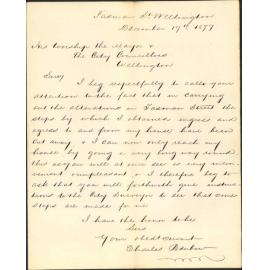 Tasman St Wellington
December 17th 1877
His Worship the Mayor &
The City Councillors
Wellington
Sirs
I beg respectfully to call your
attention to the fact that in carrying
out the alterations in Tasman Street the
steps by which I obtained ingress and
egress to and from my house have been
cut away & I can now only reach my
house by going a very long way round
this as you will at once see is very incon
venient unpleasant & I therefore beg to
ask that you will forthwith give instruc
tions to the City Surveyor to see that some
steps are made for me
I have the honor to be
Sirs
Your obedt servant
Charles